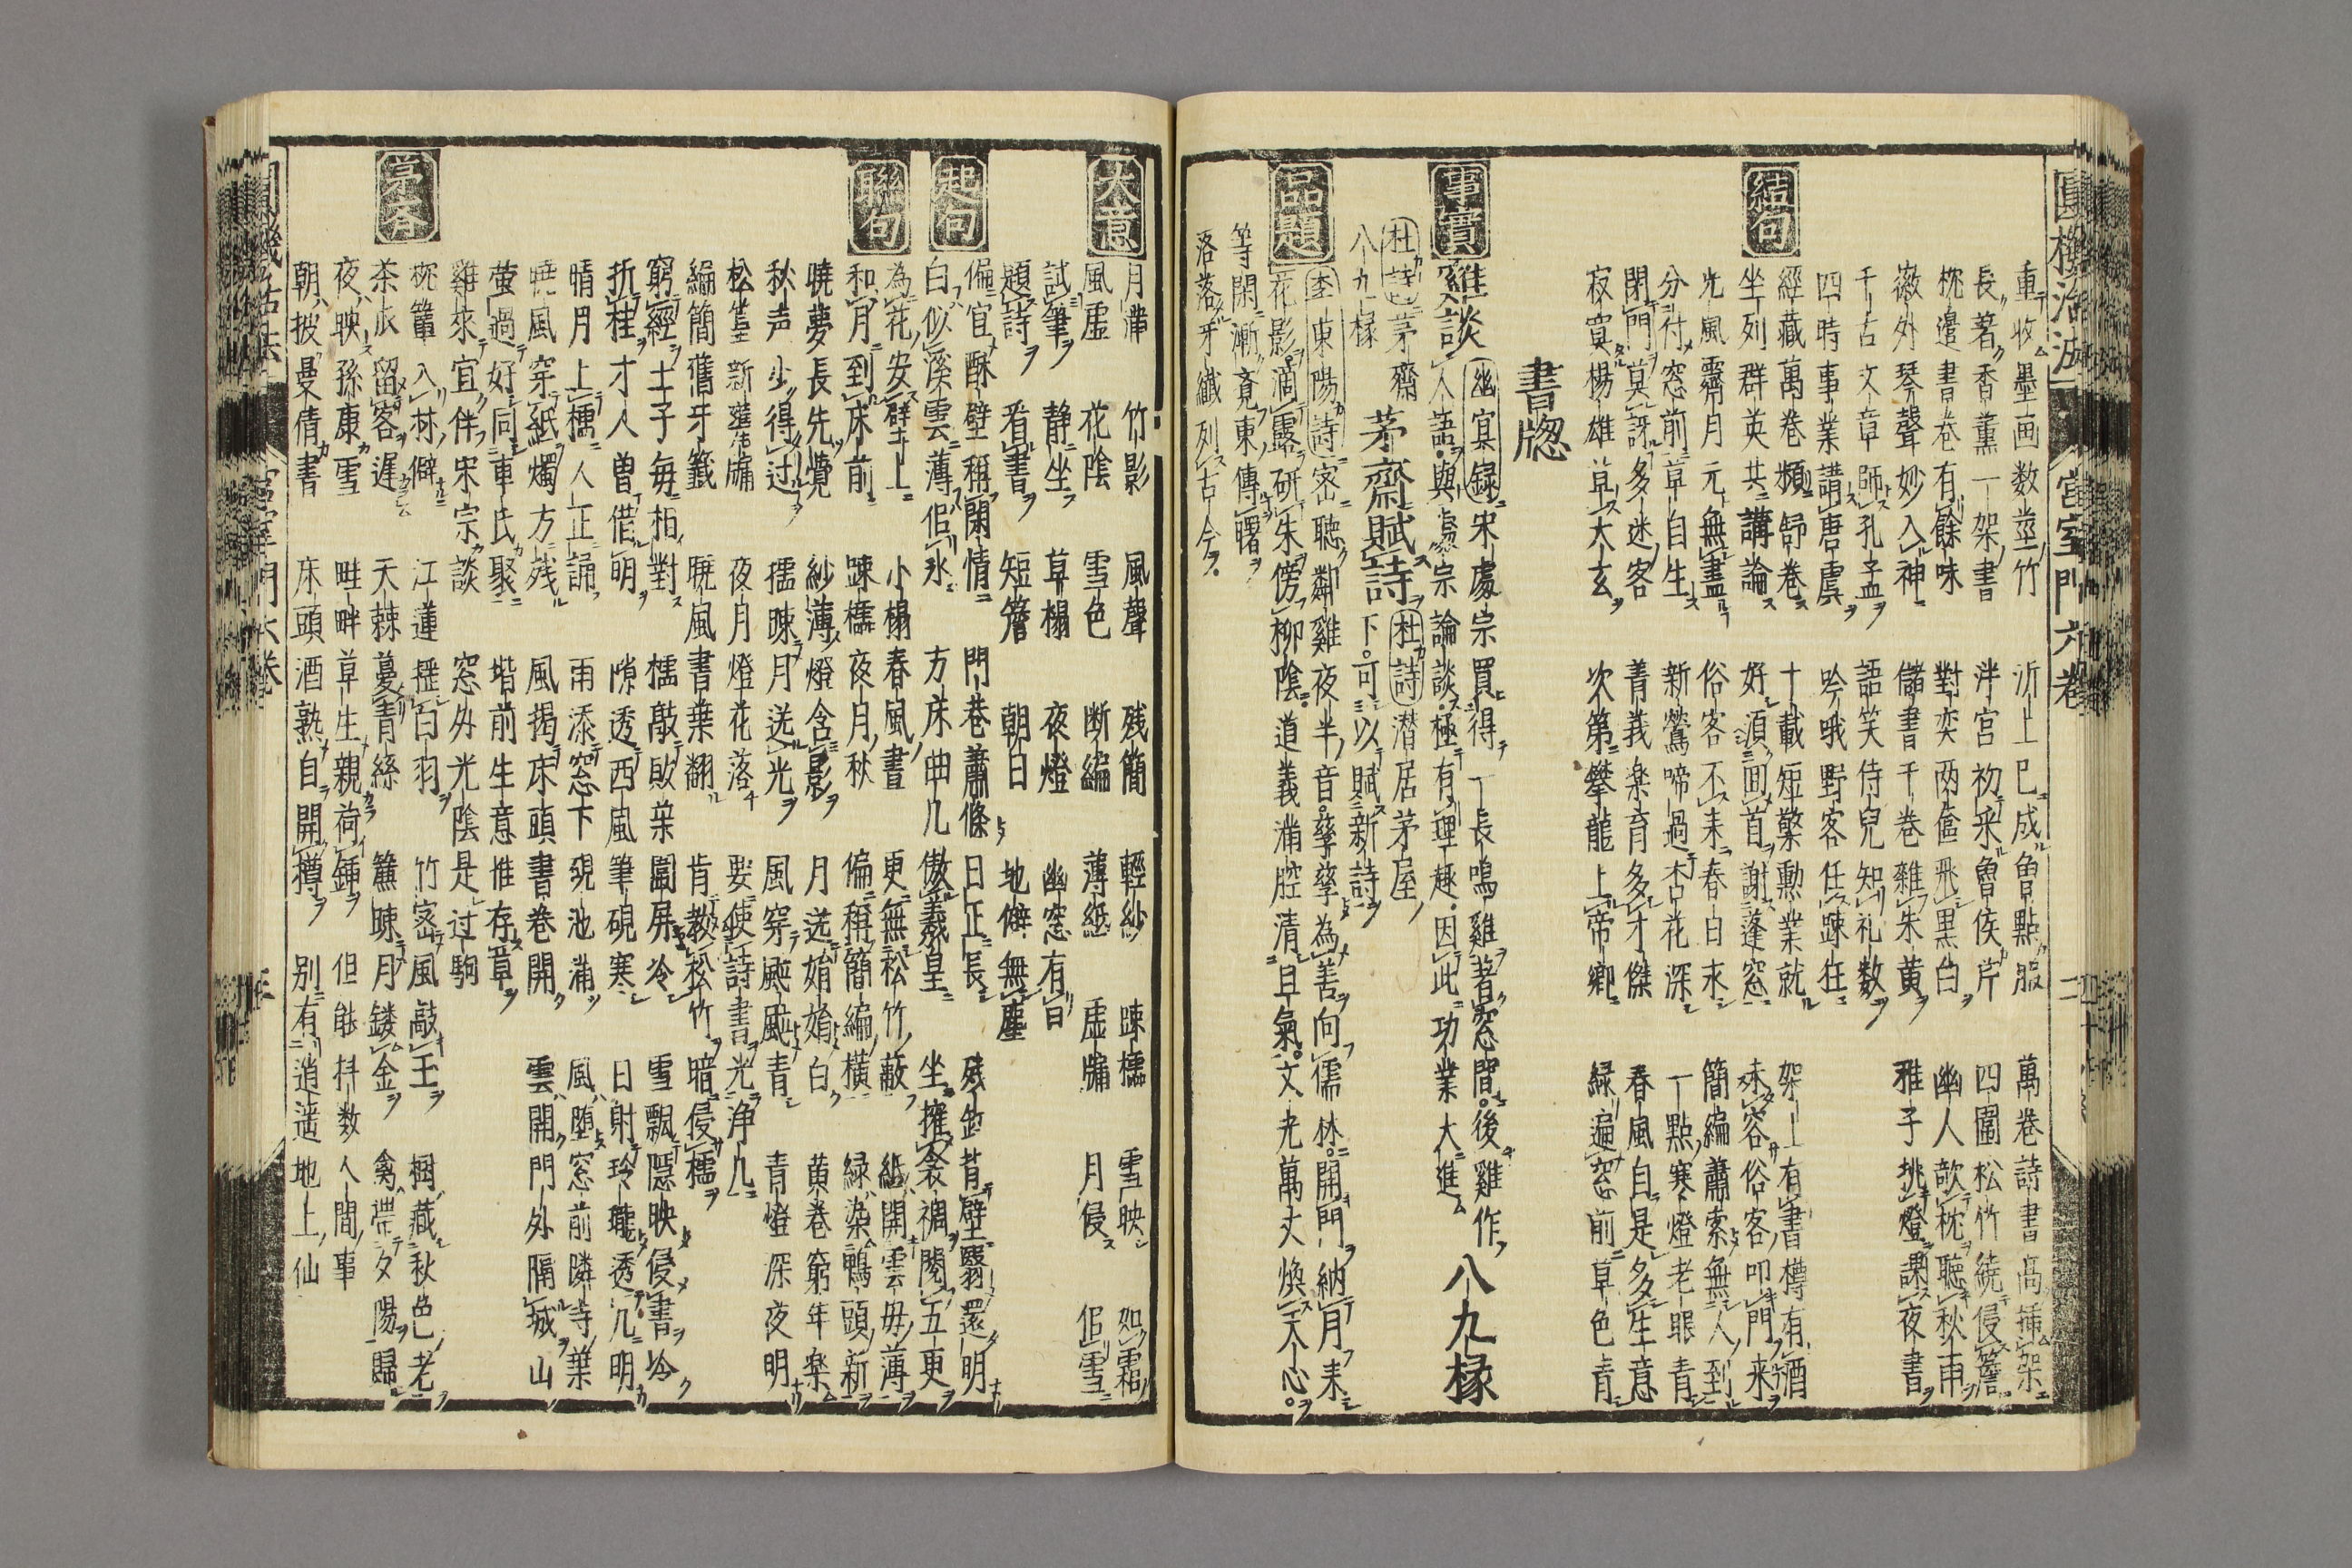 圓機活法 宮室門六卷
重收墨画数莖竹 沂上巳成魯點服 萬卷詩書高揷架
長著香薫一架書 泮宮初采魯侯芹 四圍松竹繞侵簷
枕邉書卷有餘味 對奕两奩飛黒白 幽人欹枕聽秋雨
嶶外琴聲妙入神 儲書千卷雜朱黄 稚子挑燈課夜書
千古文章師孔孟 語笑侍兒知礼数
四時事業講唐虞 吟哦野客任踈狂
經藏萬卷頻舒卷 十載短檠勳業就 架上有書樽有酒
坐列群英共講論 好湏回首謝蓬窓 未容俗客叩門来
結句
光風霽月元無盡 俗客不来春白来 簡編蕭索無人到
分付窓前草自生 新鶯啼過杏花深 一點寒燈老眼青
閉門莫訝多迷客 菁莪楽育多才傑 春風自是多生意
寂寞楊雄草大玄 次第攀龍上帝郷 緑遍窓前草色青
書牕
事實
雞談 幽冥録宋處宗買得一長鳴雞著窓間後雞作
人語與處宗論談極有理趣因此功業大進 八九椽
杜詩茅齋 茅齋賦詩 杜詩潜居茅屋
八九椽 下可以賦新詩
品題
李東陽詩宻聴鄰雞夜半音孳孳為善向儒林開門納月来
花影滴露研朱傍柳陰道義滿腔清旦氣文光萬丈煥天心
等閑漸覚東傳曙
落落牙纖列古今
大意
月滞 竹影 風聲 残簡 輕紗 踈櫺 雪映 如霜
風虚 花陰 雪色 断編 薄紙 虚牖 月侵 佀雪
試筆 静坐 草榻 夜燈 幽窓有日
題詩 看書 短簷 朝日 地僻無塵
起句
偏宜酥壁稱閑情 門巷蕭條日正長 残缸背壁翳還明
白似溪雲薄佀氷 方床曲几傲羲皇 坐擁衾禂閲五更
聯句
為花安壁上 小榻春風書 更無松竹蔽 紙開雲毋薄
和月到床前 踈櫺夜月秋 偏稱簡編横 緑染鴨頭新
暁夢長先覚 紗薄燈含影 月送娟娟白 黄卷窮年楽
秋声少得过 櫺踈月送光 風穿颭颭青 青燈深夜明
松 新 牖 夜月燈花落 要使詩書光浄几
編簡舊牙籤 暁風書葉翻 肯教松竹暗侵櫺
窮經士子毎相對 櫺敲敗葉圍屏冷 雪飄隠映侵書冷
折桂才人曽借明 隙透西風筆硯寒 日射玲瓏透几明
晴月上櫺人正誦 雨添窓下硯池滿 風堕窓前隣寺葉
暁風穿紙燭方残 風掲床頭書卷開 雲開門外隔城山
螢過好同車氏聚 堦前生意惟存草
雞來宜伴宋宗談 窓外光陰是过駒
枕簟入林僻 江蓮揺白羽 竹宻風敲玉 梱藏秋色老
茅斉
茶爪留客遅 天棘蔓青絲 簾踈月鏤金 禽帯夕陽歸
夜映孫康雪 畦畔草生親荷鍤 但能抖数人間事
朝披曼倩書 床頭酒熟自開樽 别有逍遥地上仙